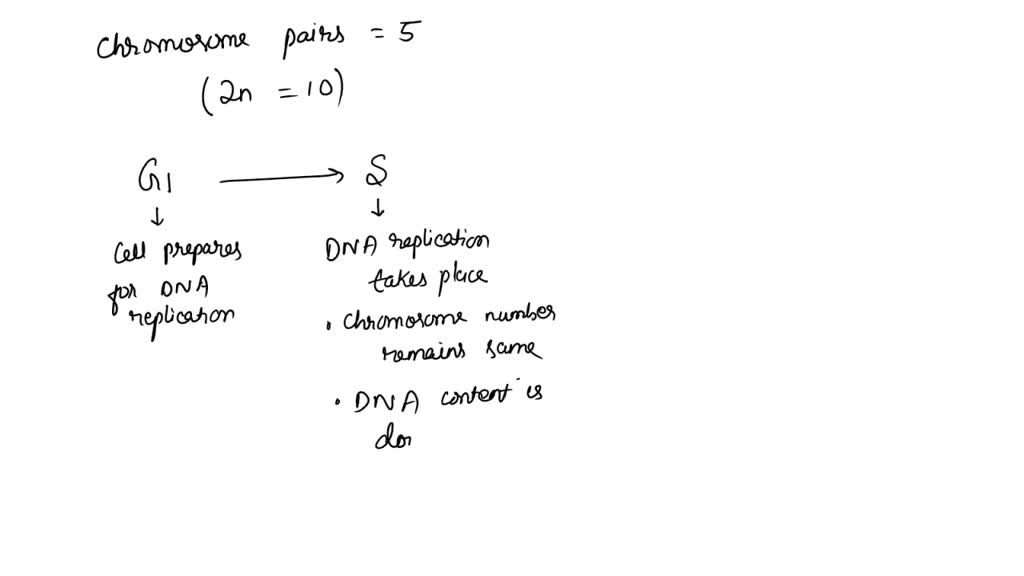 Chromosome pairs = 5
(2n = 10)
G1 → S
↓ ↓
Cell prepares
for DNA
replication
DNA replication
takes place
• Chromosome number
remains same
• DNA content is
dou